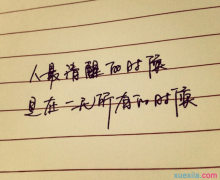 人最清醒的时候
是在一无所有的时候
xuexila.com